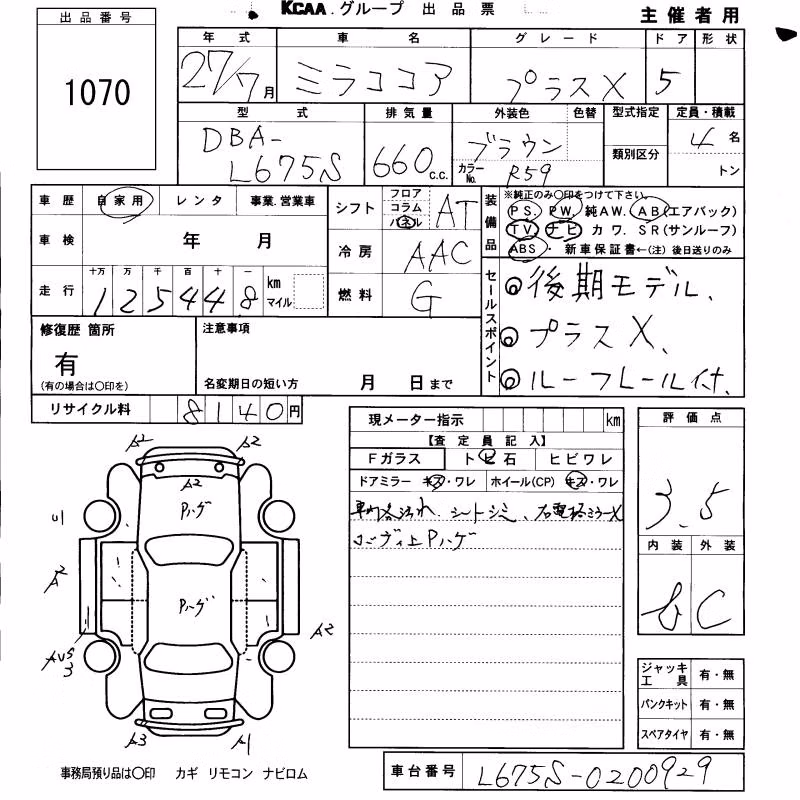 KCAA.グループ 出品票
主催者用
出品番号
1070
年式
27/7月
車名
ミラココア
グレード
プラスX
ドア
5
形状
型式
DBA-
L675S
排気量
660c.c.
外装色
ブラウン
色替
カラーNo. R59
型式指定
類別区分
定員・積載
4名
トン
車歴 自家用 レンタ 事業.営業車
車検 年 月
走行
十万 万 千 百 十 一
125448
km
マイル
シフト
フロア
コラム
パネル
AT
冷房 AAC
燃料 G
装備品
※純正のみ〇印をつけて下さい。
PS. PW. 純AW. AB(エアバック)
TV. ナビ カワ. SR(サンルーフ)
ABS ・ 新車保証書←(注) 後日送りのみ
セールスポイント
◎後期モデル、
◎プラスX、
◎ルーフレール付、
修復歴 箇所
有
(有の場合は〇印を)
注意事項
名変期日の短い方 月 日まで
リサイクル料 8140円
現メーター指示 km
【査定員記入】
Fガラス トビ石 ヒビワレ
ドアミラー キズ・ワレ ホイール(CP) キズ・ワレ
シートシミ、
Pハゲ
評価点
3.5
内装 外装
b C
ジャッキ工具 有・無
パンクキット 有・無
スペアタイヤ 有・無
A2 A2
A2
Pハゲ
U1
A2
Pハゲ
A2
3
A3 A1
事務局預り品は〇印 カギ リモコン ナビロム
車台番号 L675S-0200929